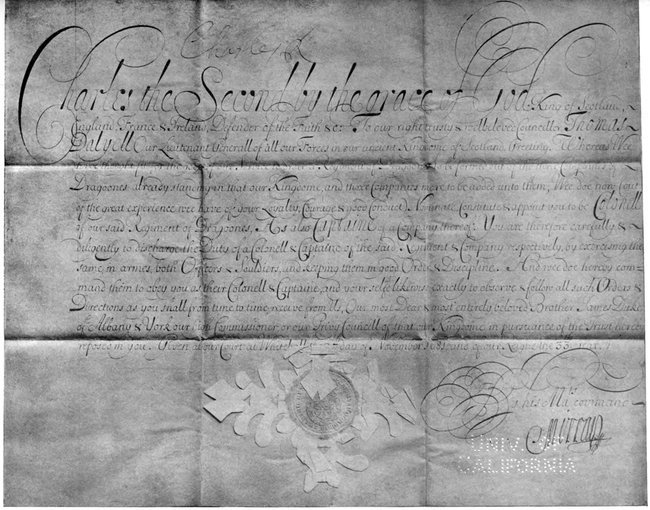 Charles R
Charles the Second by the grace of God King of Scotland,
England France & Ireland, Defender of the Faith &c: To our right trusty & welbeloved Councellor Thomas
Dalyell Our Lieutenant Generall of all our Forces in our ancient Kingdome of Scotland Greeting. Whereas Wee
Dragoones already standing in that our Kingdome, and three Companies more to be added unto them, Wee doe now (out
of the great experience wee have of your Loyalty, Courage & good Conduct) Nominate Constitute & appoint you to be Colonell
of our said Regiment of Dragoones, As also Captaine of a Company thereof. You are therefore carefully &
diligently to discharge the Duty of a Colonell & Captaine of the said Regiment & Company respectively, by exercising the
same in armes, both Officers & Souldiers, and keeping them in good Order & Discipline. And wee doe hereby com-
mand them to obey you as their Colonell & Captaine, and your selfe likewise exactly to observe & follow all such Orders &
Directions as you shall from time to time receive from Us, Our most Dear & most entirely beloved Brother James Duke
of Albany & York our Commissioner or our Privy Councill of that our Kingdome in pursuance of the Trust hereby
reposed in you. Given at our Court at the day of November 1681 and of our Reigne the 33 year
By his Ma:ties command
UNIV. OF
CALIFORNIA